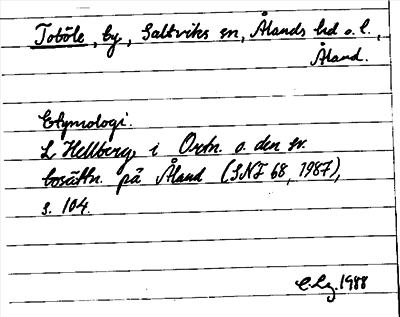 Toböle, by, Saltviks sn, Ålands hd o. l.,
Åland.
Etymologi.
L Hellberg, i Ortn. o. den sv.
bosättn. på Åland (SNF 68, 1987),
s. 104.
1988